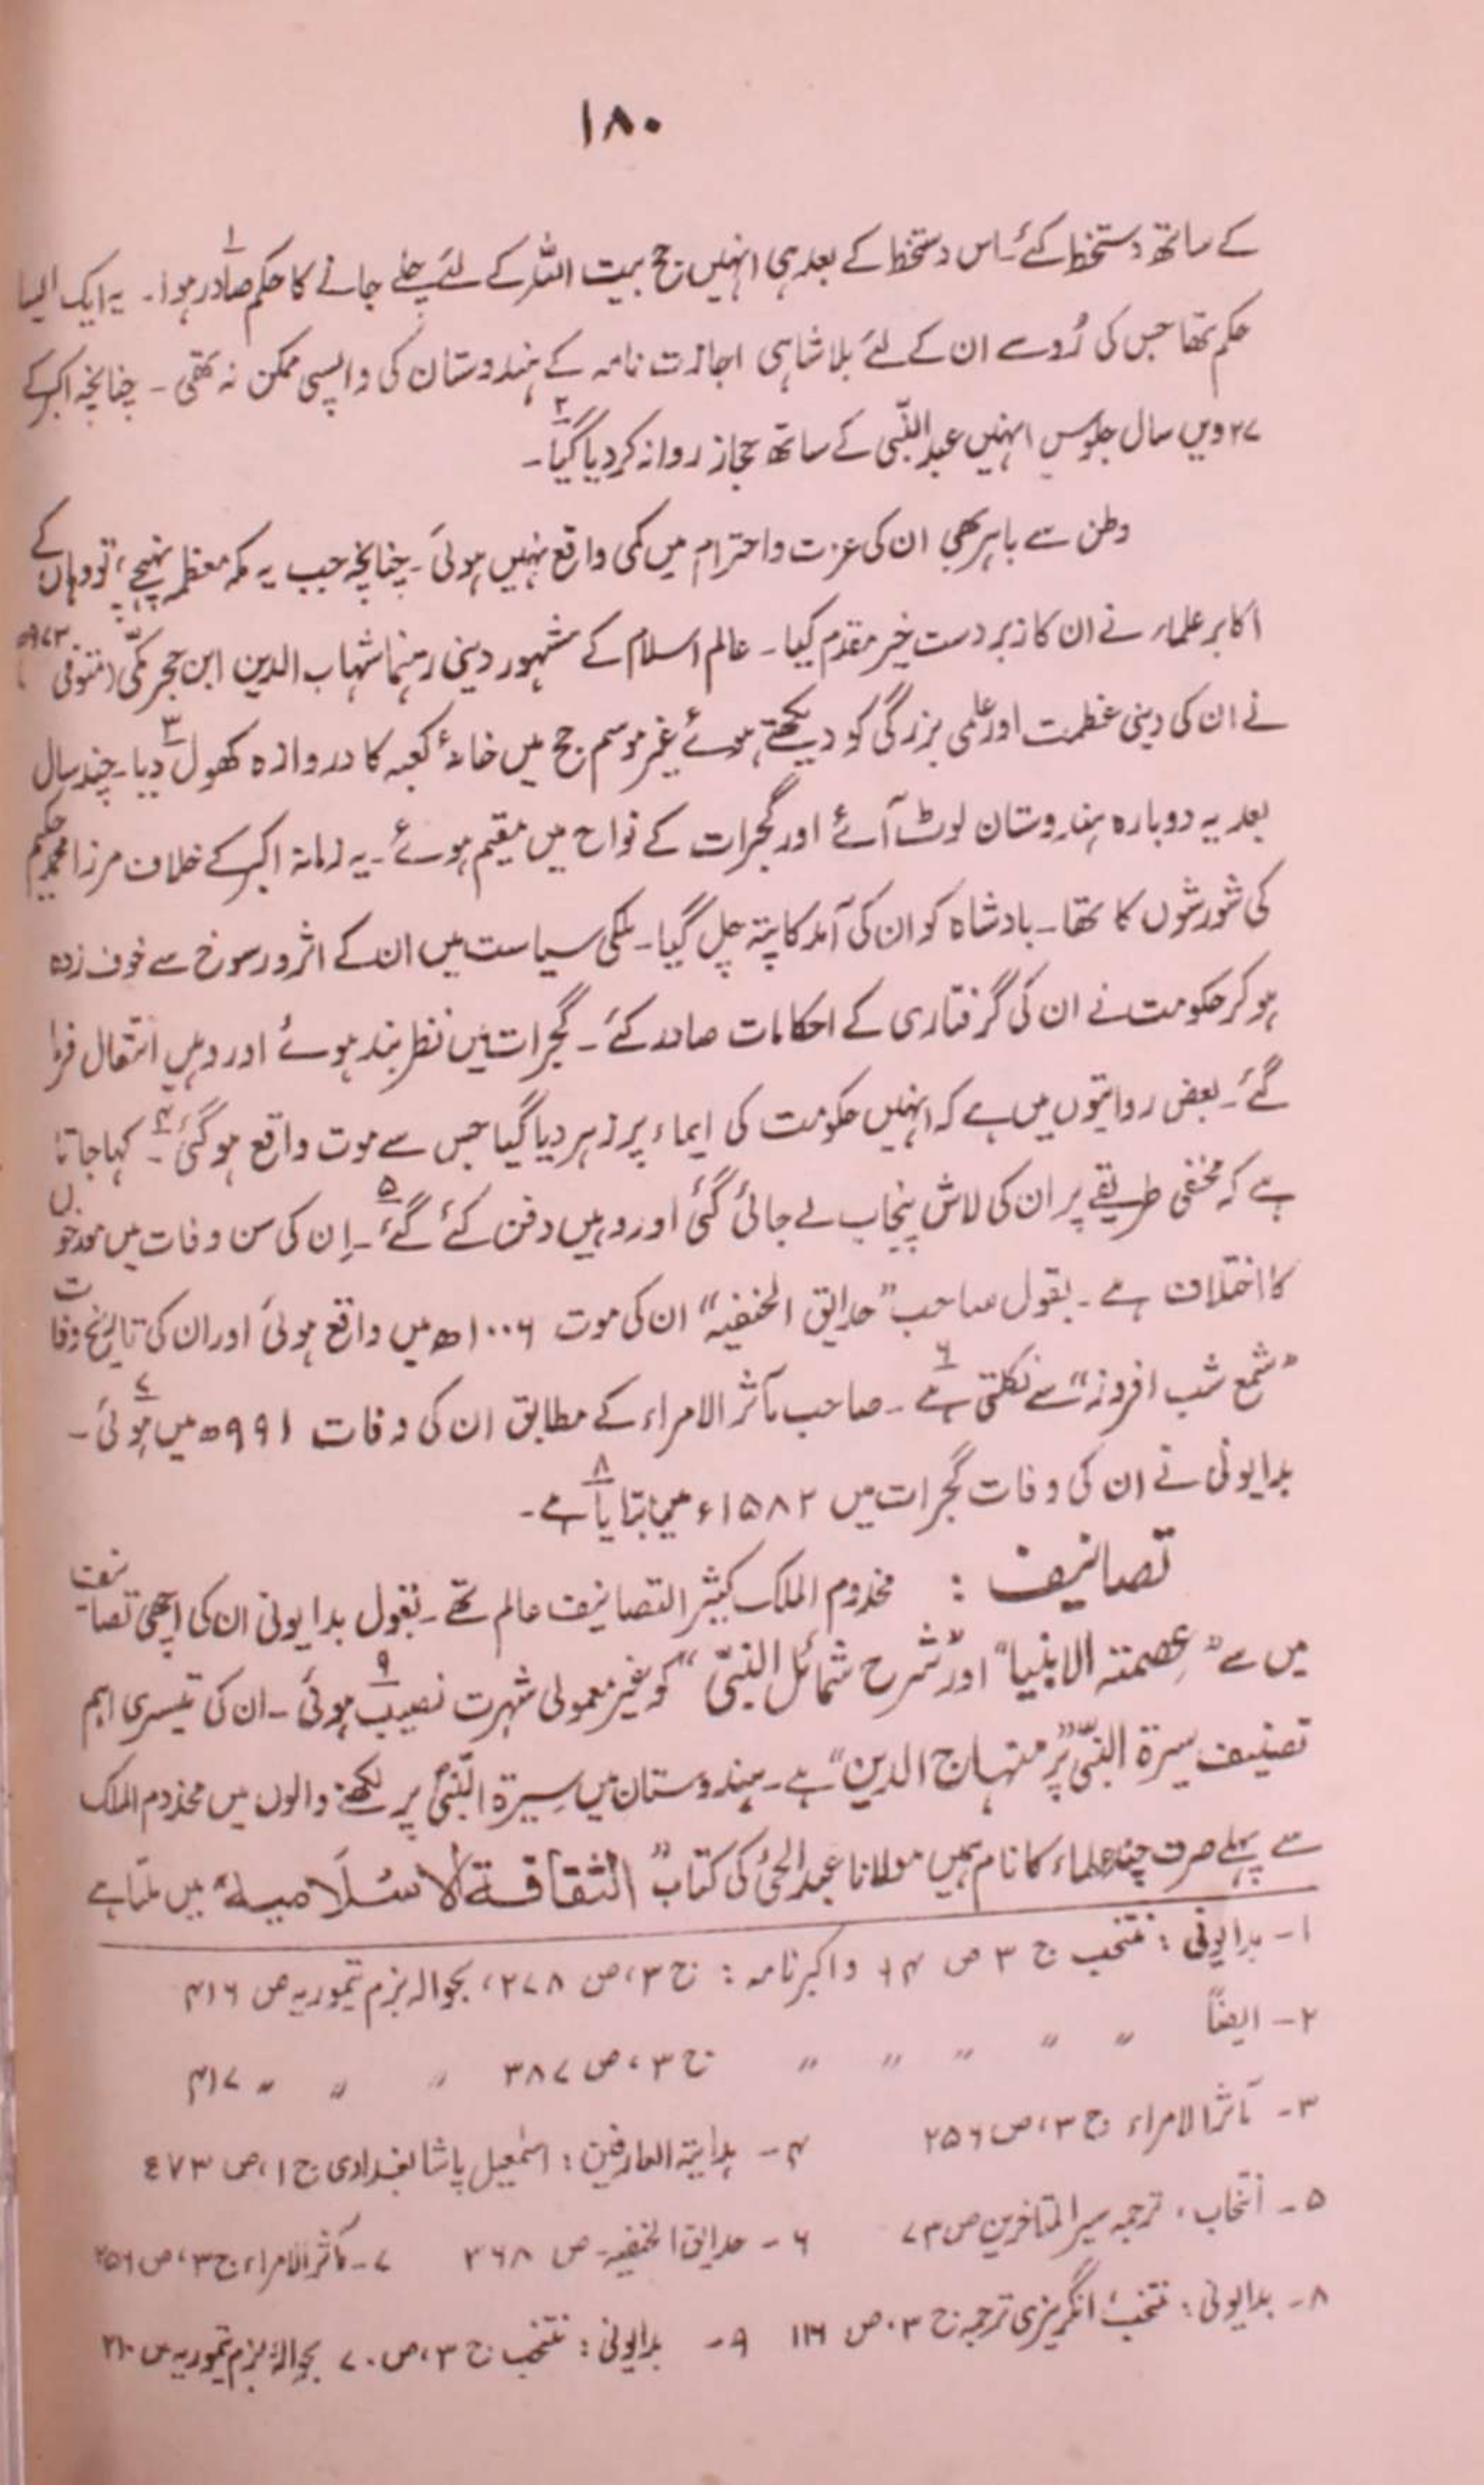 ۱۸۰
کے ساتھ دستخط کئے۔ اس دستخط کے بعد ہی انہیں حج بیت اللہ کے لئے چلے جانے کا حکم صادر ہوا۱۔ یہ ایک ایسا
حکم تھا جس کی رُو سے ان کے لئے بلا شاہی اجازت نامہ کے ہندوستان کی واپسی ممکن نہ تھی۔ چنانچہ اکبر کے
۲۷ ویں سال جلوس انہیں عبد النّبی کے ساتھ حجاز روانہ کر دیا گیا۲۔
وطن سے باہر بھی ان کی عزت و احترام میں کمی واقع نہیں ہوئی۔ چنانچہ جب یہ مکہ معظمہ پہنچے، تو وہاں کے
اکابر علماء نے ان کا زبردست خیر مقدم کیا۔ عالم اسلام کے مشہور دینی رہنما شہاب الدین ابن حجر مکّی (متوفی ۹۷۳ھ)
نے ان کی دینی عظمت اور علمی بزرگی کو دیکھتے ہوئے غیر موسم حج میں خانۂ کعبہ کا دروازہ کھول دیا۳۔ چند سال
بعد یہ دوبارہ ہندوستان لوٹ آئے اور گجرات کے نواح میں مقیم ہوئے۔ یہ زمانہ اکبر کے خلاف مرزا محمد حکیم
کی شورشوں کا تھا۔ بادشاہ کو ان کی آمد کا پتہ چل گیا۔ ملکی سیاست میں ان کے اثر و رسوخ سے خوف زدہ
ہو کر حکومت نے ان کی گرفتاری کے احکامات صادر کئے۔ گجرات میں نظر بند ہوئے اور وہیں انتقال فرما
گئے۔ بعض روایتوں میں ہے کہ انہیں حکومت کی ایماء پر زہر دیا گیا جس سے موت واقع ہو گئی۴۔ کہا جاتا
ہے کہ مخفی طریقے پر ان کی لاش پنجاب لے جائی گئی اور وہیں دفن کئے گئے۵۔ اِن کی سن وفات میں مورخوں
کا اختلاف ہے۔ بقول صاحب ”حدایق الحنفیہ“ ان کی موت ۱۰۰۶ھ میں واقع ہوئی اور ان کی تاریخ وفات
”شمع شب افروز“ سے نکلتی ہے۶۔ صاحب مآثر الامراء کے مطابق ان کی وفات ۹۹۱ھ میں ہوئی۷۔
بدایونی نے ان کی وفات گجرات میں ۱۵۸۲ء میں بتایا ہے۸۔
تصانیف : مخدوم الملک کثیر التصانیف عالم تھے۔ بقول بدایونی ان کی اچھی تصانیف
میں سے ”عِصمتہ الانبیا“ اور ”شرح شمائل النبیّ“ کو غیر معمولی شہرت نصیب ہوئی۹۔ ان کی تیسری اہم
تصنیف سیرۃ النبیّ پر ”منہاج الدین“ ہے۔ ہندوستان میں سِیرۃ النّبیؐ پر لکھنے والوں میں مخدوم الملک
سے پہلے صرف چند علماء کا نام ہمیں مولانا عبد الحئ کی کتاب ”الثقافۃ الاسلامیہ“ میں ملتا ہے
۱- بدایونی : منتخب ج ۳ ص و اکبر نامہ : ج ۳، ص ۲۷۸، بحوالہ بزم تیموریہ ص ۴۱۶
۲- ایضاً ” ” ” ” ” ج ۳، ص ۳۸۷ ” ” ” ۴۱۷
۳- مآثر الامراء ج ۳، ص ۲۵۶ ۴- ہدایتہ العارفین : اسمٰعیل پاشا بغدادی ج ۱، ص ٤٧٣
۵- انتخاب، ترجمہ سیر المتاخرین ص ۷۳ ۶- حدایق الحنفیہ ص ۳۶۸ ۷- مآثر الامراء ج ۳، ص ۲۵۶
۸- بدایونی : منتخب انگریزی ترجمہ ج ۳، ص ۱۱۶ ۹- بدایونی : منتخب ج ۳، ص ۷۰ بحوالہ بزم تیموریہ ص